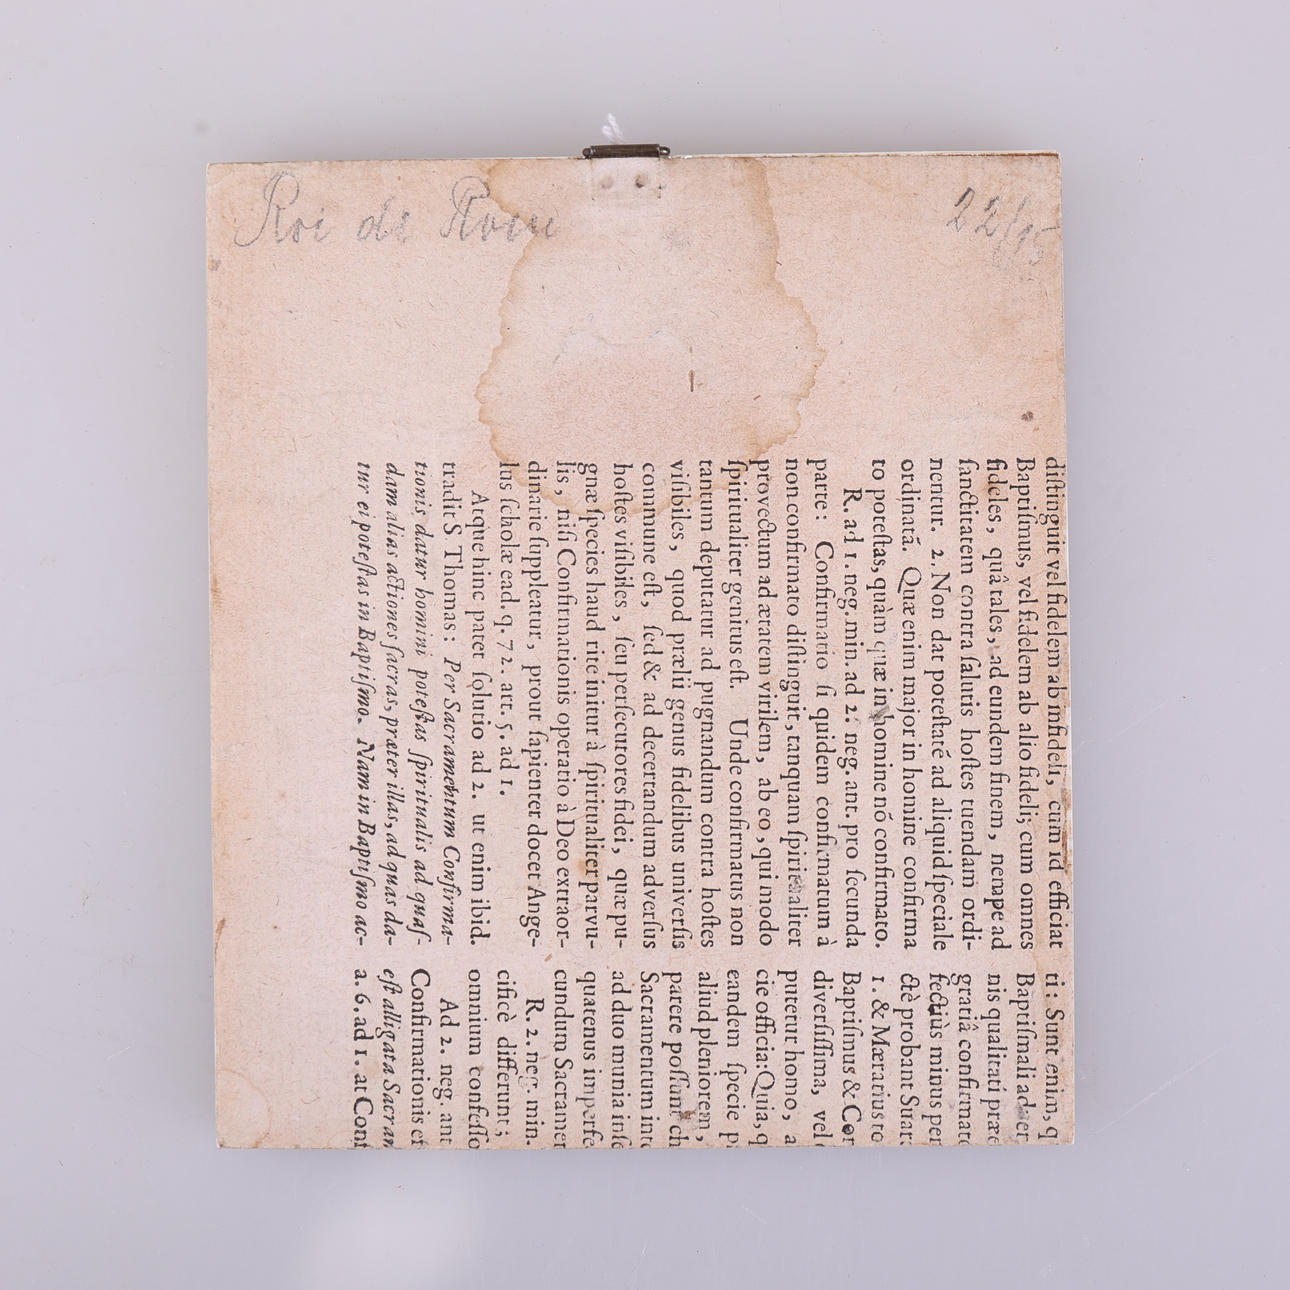 Roi de Rome
22/15
distinguit vel fidelem ab infideli, cum id efficiat
Baptiſmus, vel fidelem ab alio fideli; cum omnes
fideles, quâ tales, ad eundem finem, nempe ad
ſanctitatem contra ſalutis hoſtes tuendam ordi-
nentur. 2. Non dat poteſtatē ad aliquid ſpeciale
ordinatā. Quæ enim major in homine confirma
to poteſtas, quàm quæ in homine nō confirmato.
R. ad 1. neg. min. ad 2. neg. ant. pro ſecunda
parte: Confirmatio ſi quidem confirmatum à
non confirmato diſtinguit, tanquam ſpiritualiter
provectum ad ætatem virilem, ab eo, qui modo
ſpiritualiter genitus eſt. Unde confirmatus non
tantum deputatur ad pugnandum contra hoſtes
viſibiles, quod prælii genus fidelibus univerſis
commune eſt, ſed & ad decertandum adverſus
hoſtes viſibiles, ſeu perſecutores fidei, quæ pu-
gnæ ſpecies haud rite initur à ſpiritualiter parvu-
lis, niſi Confirmationis operatio à Deo extraor-
dinarie ſuppleatur, prout ſapienter docet Ange-
lus ſcholæ ead. q. 72. art. 5. ad 1.
Atque hinc patet ſolutio ad 2. ut enim ibid.
tradit S Thomas: Per Sacramentum Confirma-
tionis datur homini poteſtas ſpiritualis ad quaſ-
dam alias actiones ſacras, præter illas, ad quas da-
tur ei poteſtas in Baptiſmo. Nam in Baptiſmo ac-
ti: Sunt enim, q
Baptiſmali ad
nis qualitati præ
gratiâ confirmat
fectiùs minus per
ctè probant Suar
1. & Mæratius to
Baptiſmus & Cor
diverſiſſima, vel
putetur homo, a
cie officia: Quia, q
eandem ſpecie p
aliud pleniorem,
parere poſſunt ch
Sacramentum int
ad duo munia inſ
quatenus imperfe
cundum Sacramen
R. 2. neg. min.
cificè differunt;
omnium confeſſo
Ad 2. neg. ant
Confirmationis ef
eſt alligata Sacram
a. 6. ad 1. at Conf